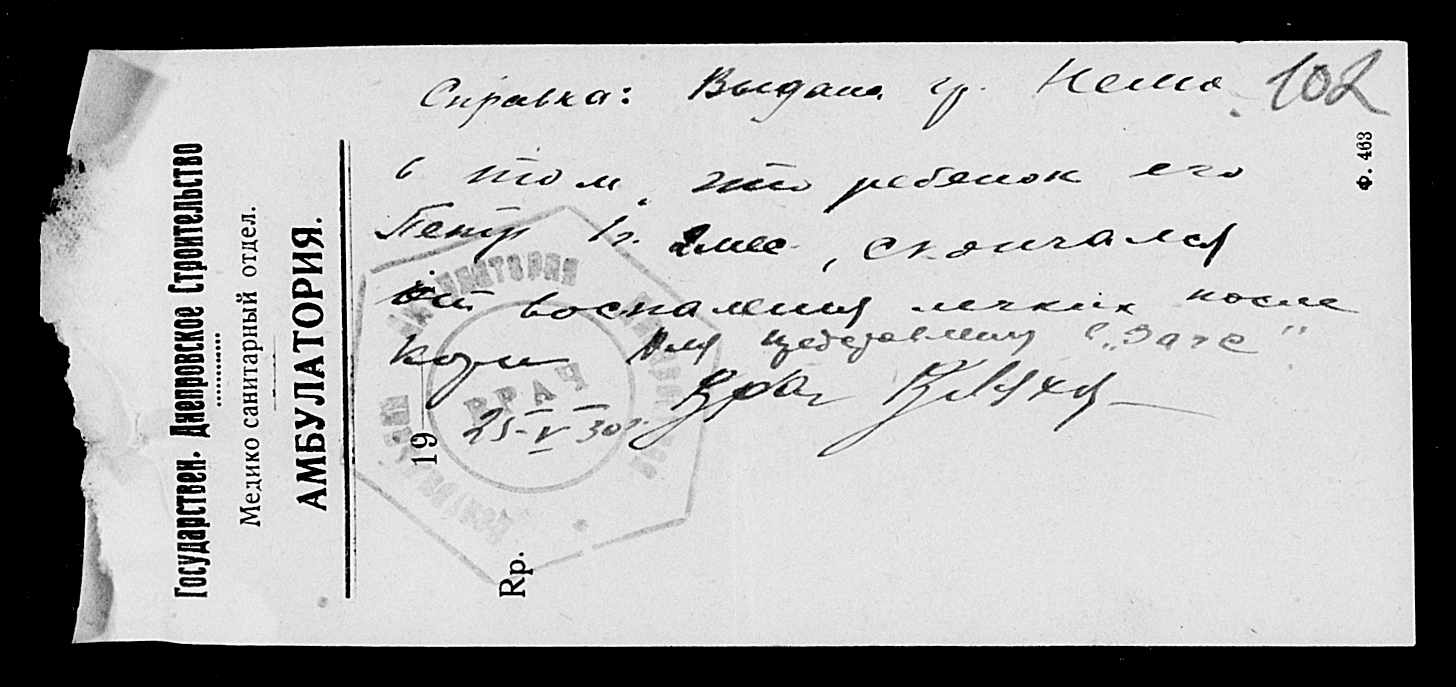 Государствен. Днепровское Строительство
Медико санитарный отдел.
АМБУЛАТОРИЯ.
19
Rp.
102
Ф. 463
Справка: Выдана гр. Немо
в том, что ребенок его
Петр 1г. 2мес, скончался
от воспаления легких после
кори Для в „Загс"
Врач
25-V-30г.
ВРАЧ